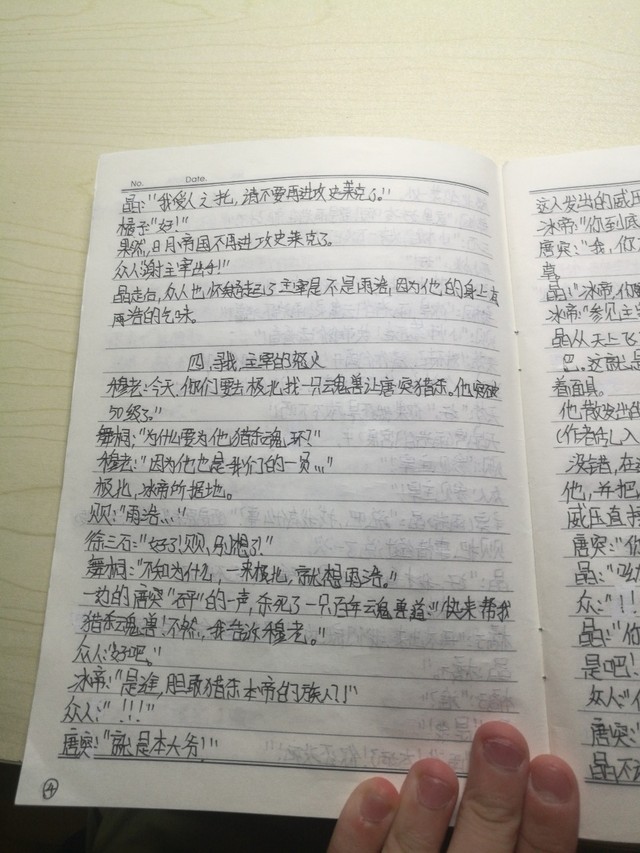 No. Date.
晶:"我受人之托,请不要再进攻史莱克了。"
橘子:"好!"
果然,日月帝国不再进攻史莱克了。
众人:"谢主宰出手!"
晶走后,众人也怀疑起了主宰是不是雨浩,因为他的身上有
雨浩的气味。
四、寻找,主宰的怒火
穆老:"今天,你们要去极北找一只魂兽让唐突猎杀,他突破
50级了。"
舞桐:"为什么要为他猎杀魂环?"
穆老:"因为他也是我们的一员…"
极北,冰帝所据地。
贝贝:"雨浩…"
徐三石:"好了!贝贝,别想了!"
舞桐:"不知为什么,一来极北,就想雨浩。"
一边的唐突"砰"的一声,杀死了一只百年魂兽道:"快来帮我
猎杀魂兽!不然,我告诉穆老。"
众人:"好吧。"
冰帝:"是谁,胆敢猎杀本帝的族人!"
众人:"!!!"
唐突:"就是本大爷!"
④
这人发出的威压
冰帝:"你到底
唐突:"我,你
晶:"冰帝,你
冰帝:"参见主
晶从天上飞
巴。这就是
着面具。
他散发出的
(作者乱入
没错,在
他,并把
威压直接
唐突:"你
晶:"
众:"!!
晶:"你
是吧!
众人:"
唐突:"
晶不